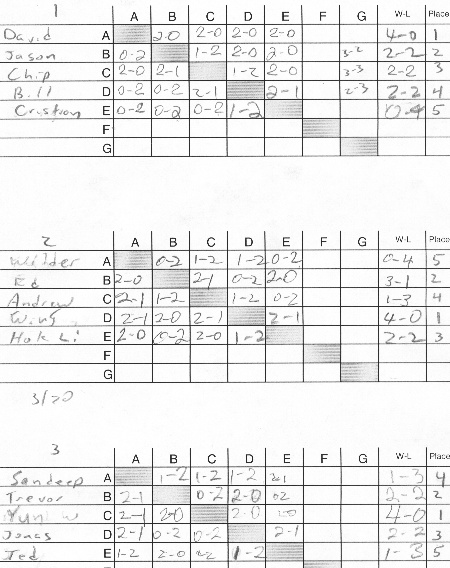 1
A B C D E F G W-L Place
David A 2-0 2-0 2-0 2-0 4-0 1
Jason B 0-2 1-2 2-0 2-0 3-2 2-2 2
Chip C 2-0 2-1 1-2 2-0 3-3 2-2 3
Bill D 0-2 0-2 2-1 2-1 2-3 2-2 4
E 0-2 0-2 0-2 1-2 0-4 5
F
G
2
A B C D E F G W-L Place
Wilder A 0-2 1-2 1-2 0-2 0-4 5
Ed B 2-0 2-1 0-2 2-0 3-1 2
Andrew C 2-1 1-2 1-2 0-2 1-3 4
D 2-1 2-0 2-1 2-1 4-0 1
Hok Li E 2-0 0-2 2-0 1-2 2-2 3
F
G
3/20
3
A B C D E F G W-L Place
Sandeep A 1-2 1-2 1-2 1-3 4
Trevor B 2-1 0-2 2-0 0-2 2-2 2
C 2-1 2-0 2-0 4-0 1
Jonas D 2-1 0-2 0-2 2-1 2-2 3
Ted E 1-2 2-0 1-2 1-3 5